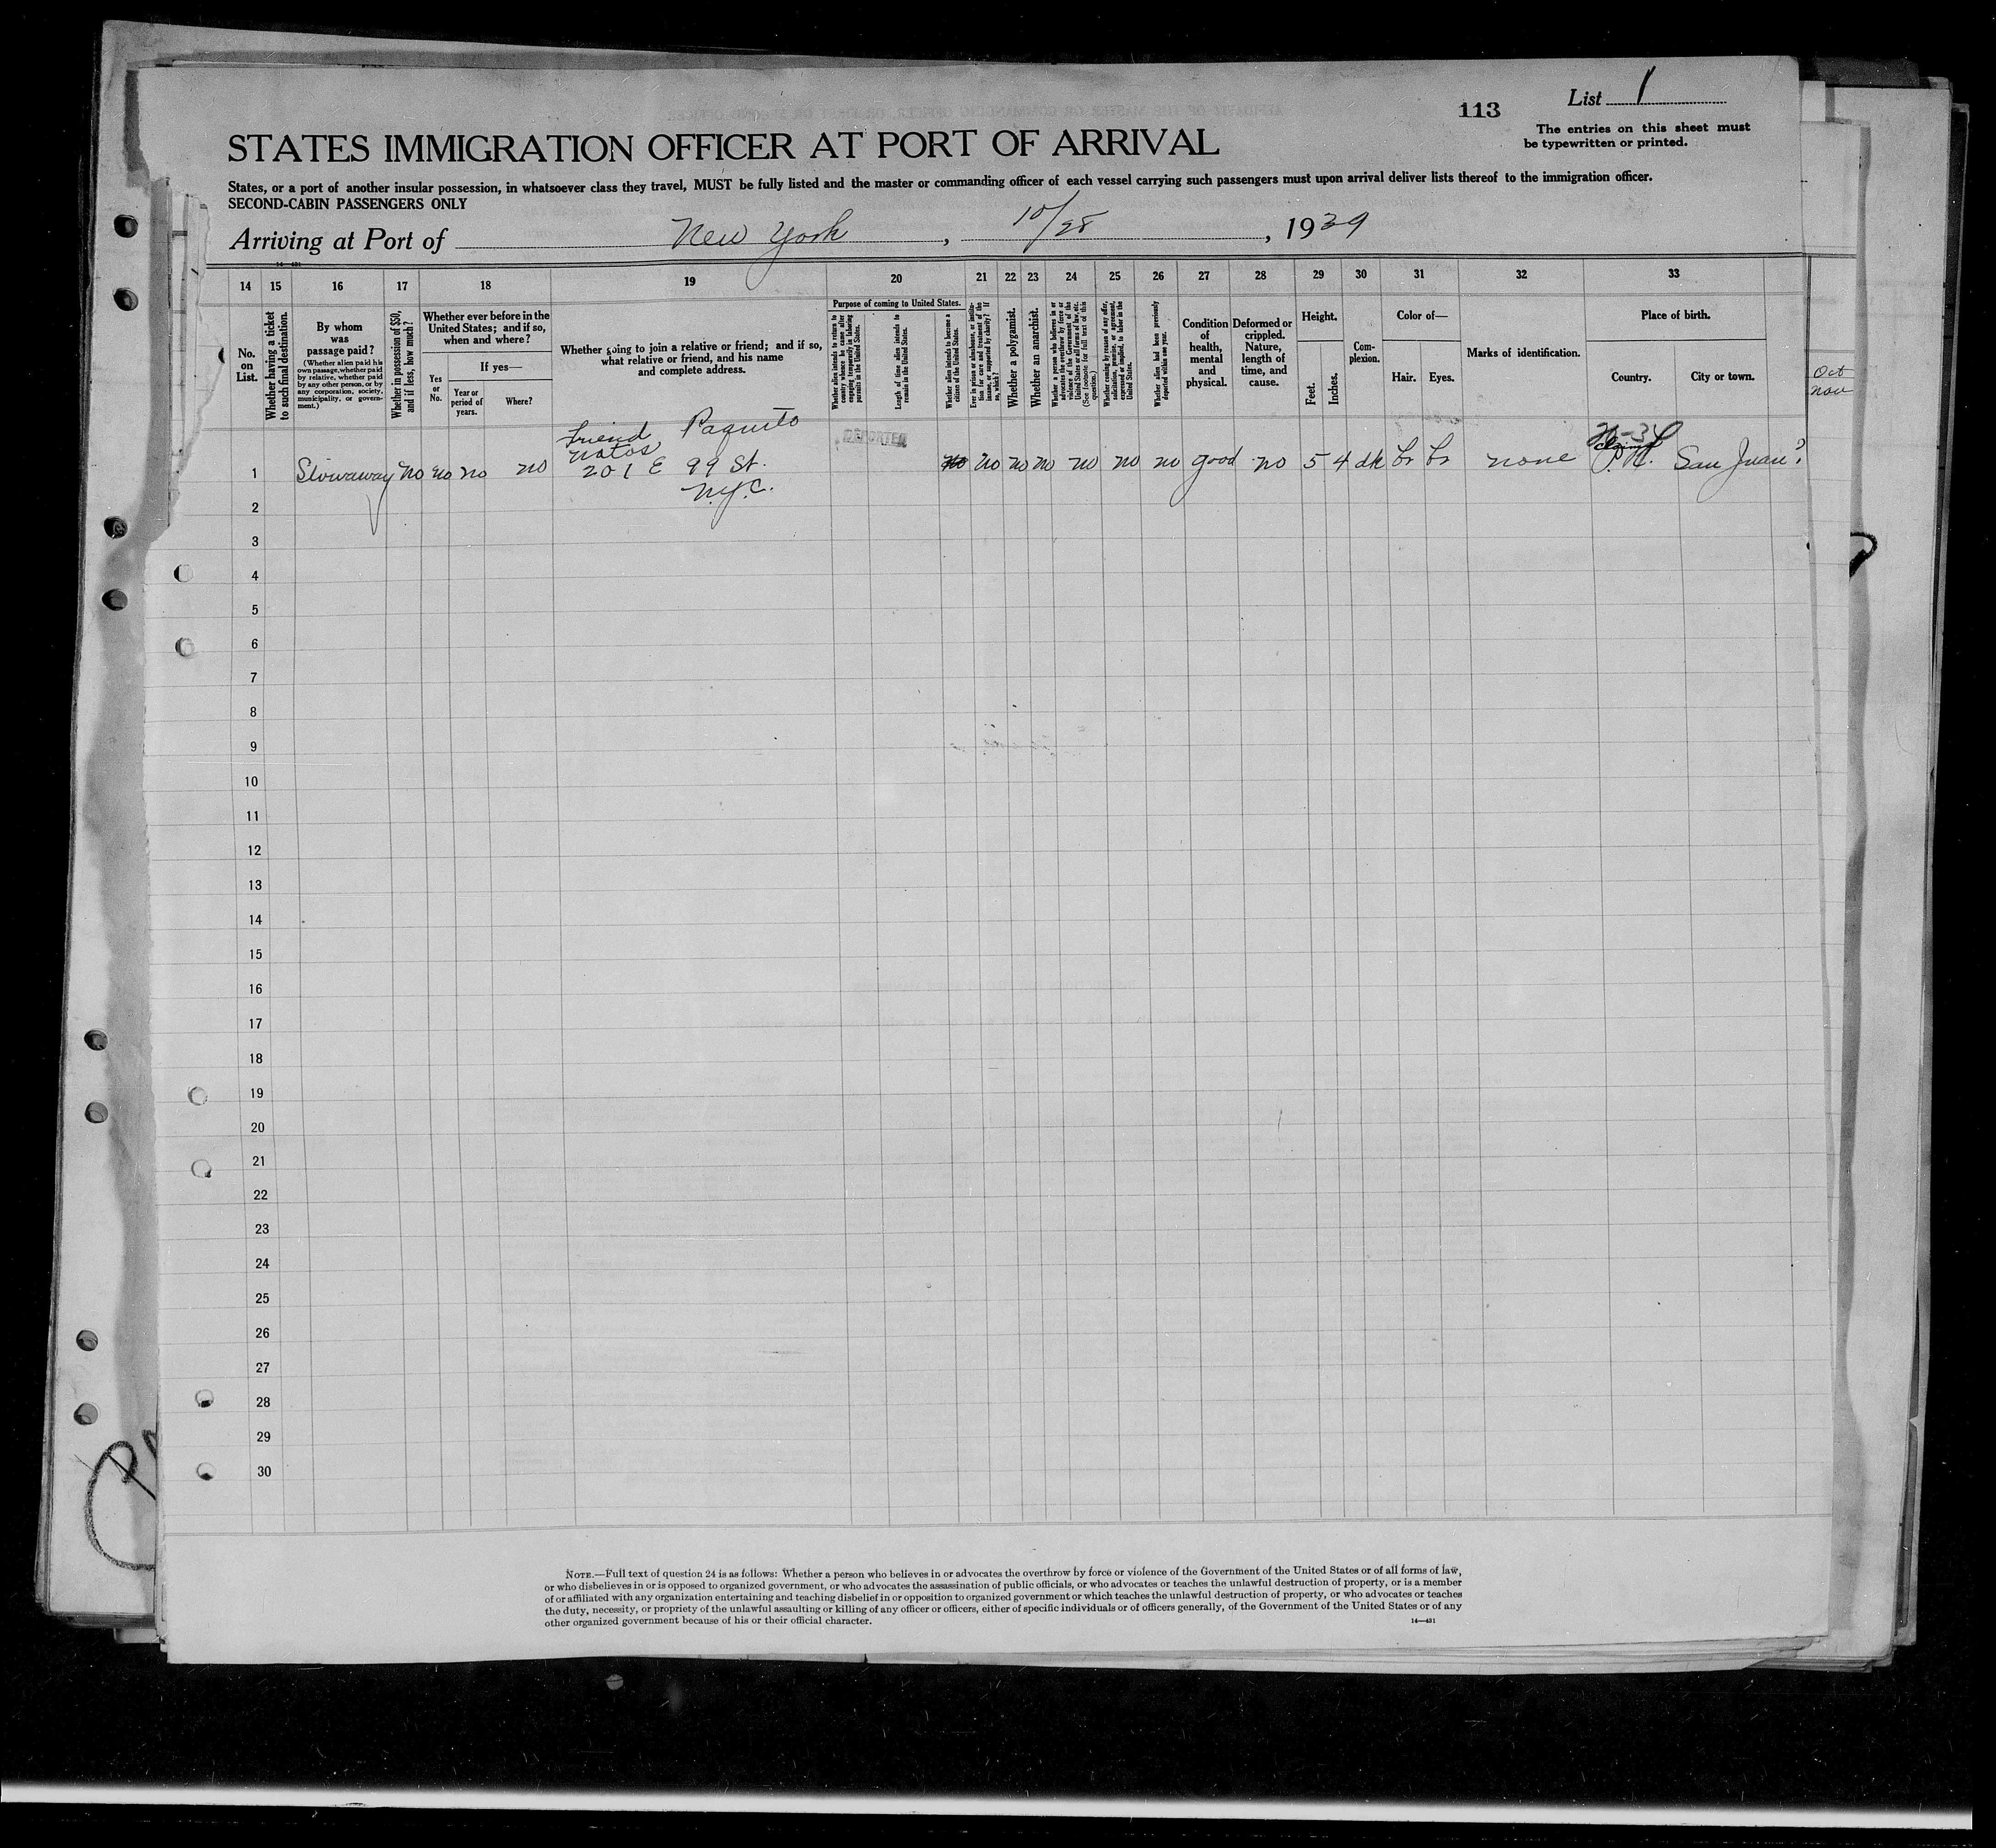 113
List 1
The entries on this sheet must
be typewritten or printed.
STATES IMMIGRATION OFFICER AT PORT OF ARRIVAL
States, or a port of another insular possession, in whatsoever class they travel, MUST be fully listed and the master or commanding officer of each vessel carrying such passengers must upon arrival deliver lists thereof to the immigration officer.
SECOND-CABIN PASSENGERS ONLY
Arriving at Port of New York, 10/28, 1939
14—431
14 15 16 17 18 19 20 21 22 23 24 25 26 27 28 29 30 31 32 33
No. on List.
Whether having a ticket to such final destination.
By whom was passage paid?
(Whether alien paid his own passage, whether paid by relative, whether paid by any other person, or by any corporation, society, municipality, or government.)
Whether in possession of $50, and if less, how much?
Whether ever before in the United States; and if so, when and where?
Yes or No.
If yes—
Year or period of years.
Where?
Whether going to join a relative or friend; and if so, what relative or friend, and his name and complete address.
Purpose of coming to United States.
Whether alien intends to return to country whence he came after engaging temporarily in laboring pursuits in the United States.
Length of time alien intends to remain in the United States.
Whether alien intends to become a citizen of the United States.
Ever in prison or almshouse, or institution for care and treatment of the insane, or supported by charity? If so, which?
Whether a polygamist.
Whether an anarchist.
Whether a person who believes in or advocates the overthrow by force or violence of the Government of the United States or all forms of law, etc. (See footnote for full text of this question.)
Whether coming by reason of any offer, solicitation, promise, or agreement, expressed or implied, to labor in the United States.
Whether alien had been previously deported within one year.
Condition of health, mental and physical.
Deformed or crippled. Nature, length of time, and cause.
Height.
Feet.
Inches.
Complexion.
Color of—
Hair.
Eyes.
Marks of identification.
Place of birth.
Country.
City or town.
Oct
Nov
friend Paquito
Matos
DEPORTED
1 Stowaway no no no no 201 E 99 St. no no no no no no no good no 5 4 dk br br none P.R. San Juan?
N.Y.C.
2
3
4
5
6
7
8
9
10
11
12
13
14
15
16
17
18
19
20
21
22
23
24
25
26
27
28
29
30
NOTE.—Full text of question 24 is as follows: Whether a person who believes in or advocates the overthrow by force or violence of the Government of the United States or of all forms of law,
or who disbelieves in or is opposed to organized government, or who advocates the assassination of public officials, or who advocates or teaches the unlawful destruction of property, or is a member
of or affiliated with any organization entertaining and teaching disbelief in or opposition to organized government or which teaches the unlawful destruction of property, or who advocates or teaches
the duty, necessity, or propriety of the unlawful assaulting or killing of any officer or officers, either of specific individuals or of officers generally, of the Government of the United States or of any
other organized government because of his or their official character.
14—431